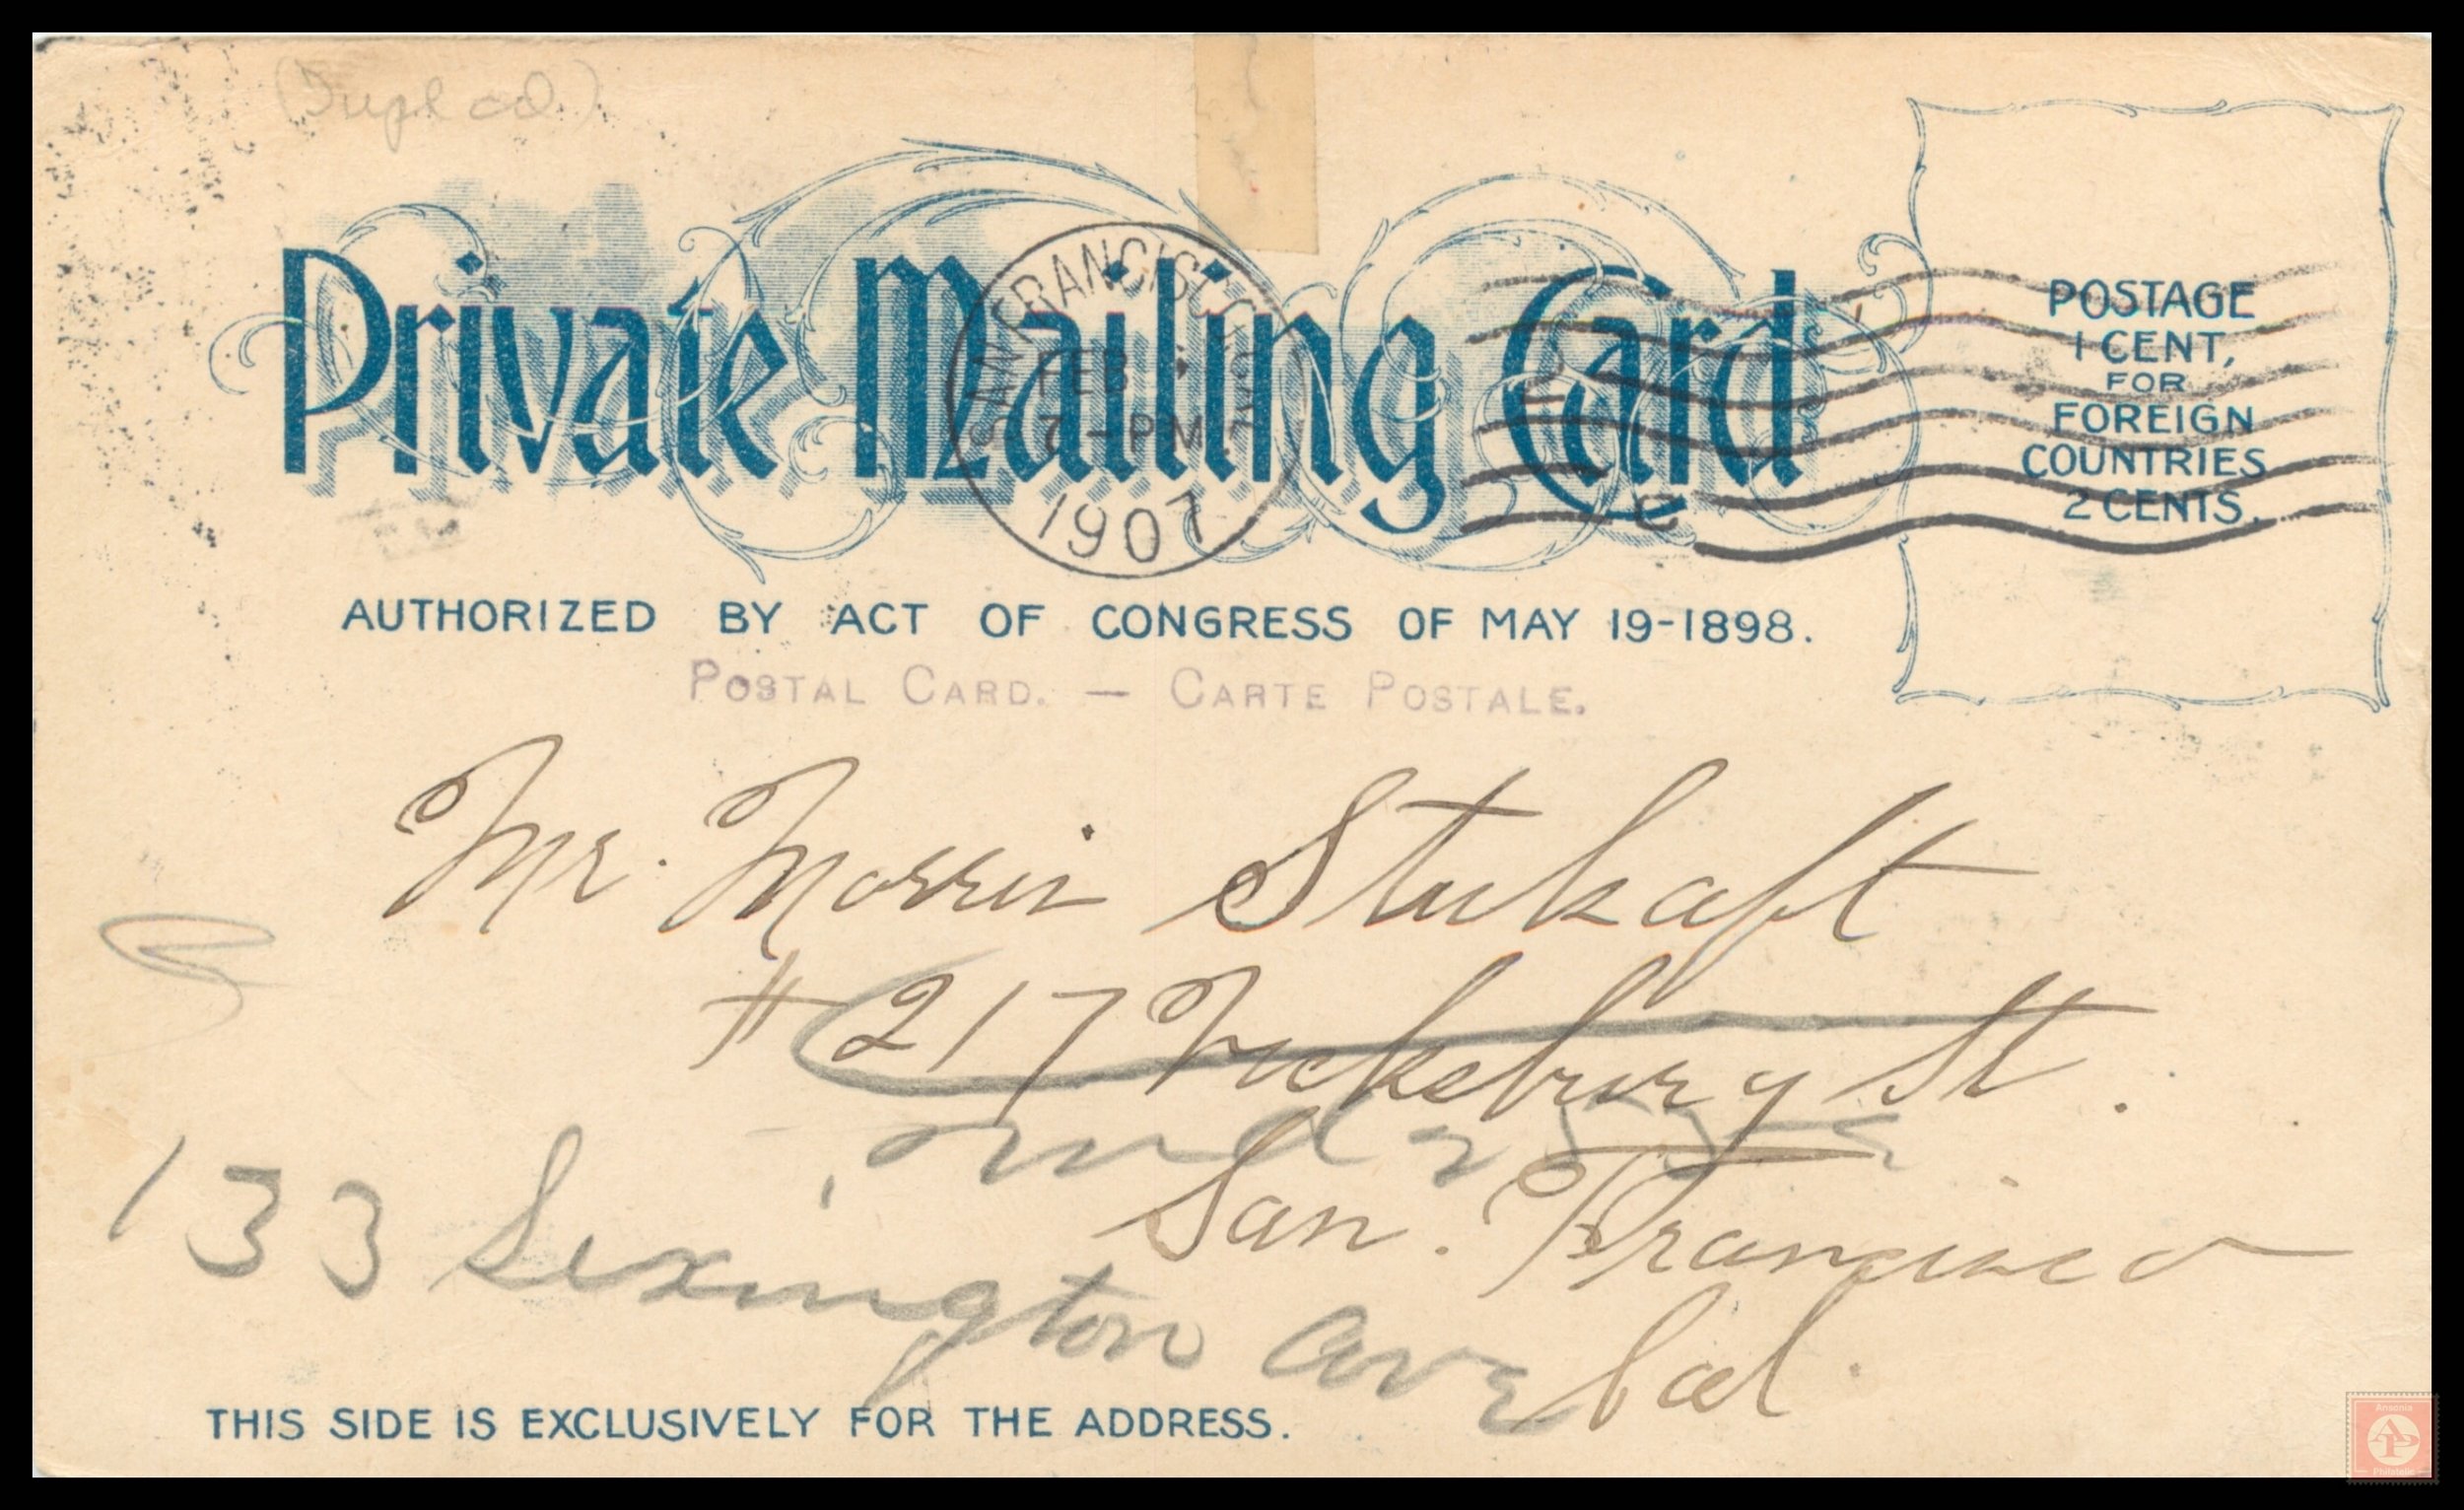 Private Mailing Card
SAN FRANCISCO, CAL.
FEB
7 - PM
1907
POSTAGE
1 CENT,
FOR
FOREIGN
COUNTRIES
2 CENTS.
AUTHORIZED BY ACT OF CONGRESS OF MAY 19-1898.
POSTAL CARD. — CARTE POSTALE.
Mr. Morris
# 217 St.
San. Francisco
Cal.
133 Lexington Ave
THIS SIDE IS EXCLUSIVELY FOR THE ADDRESS.
Ansonia
AP
Philatelic